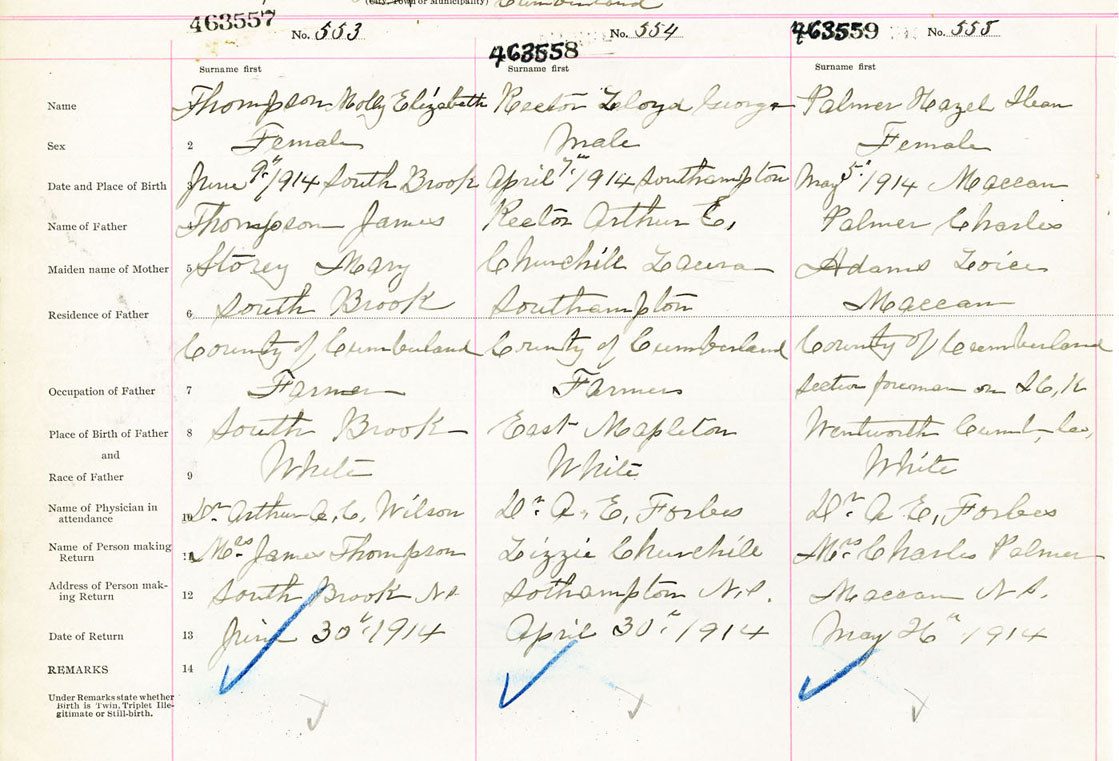 (City, Town or Municipality) Cumberland
463557
No. 553
463558
No. 554
463559
No. 555
Surname first
Surname first
Surname first
Name Thompson Molly Elizabeth Rector Lloyd George Palmer Hazel Ilean
Sex 2 Female Male Female
Date and Place of Birth 3 June 9th/1914 South Brook April 7th/1914 Southampton May 5th/1914 Maccan
Name of Father 4 Thompson James Rector Arthur E, Palmer Charles
Maiden name of Mother 5 Storey Mary Churchill Laura Adams
Residence of Father 6 South Brook Southampton Maccan
County of Cumberland County of Cumberland County of Cumberland
Occupation of Father 7 Farmer Farmer Section foreman on I, C, R
Place of Birth of Father 8 South Brook East Mapleton Wentworth Cumb, Co,
and
Race of Father 9 White White White
Name of Physician in
attendance 10 Dr. Arthur C, Wilson Dr. A, E, Forbes Dr. A E, Forbes
Name of Person making
Return 11 Mrs James Thompson Lizzie Churchill Mrs Charles Palmer
Address of Person mak-
ing Return 12 South Brook N.S. Sothampton N.S. Maccan N.S.
Date of Return 13 June 30th/1914 April 30th/1914 May 26th 1914
REMARKS 14
Under Remarks state whether
Birth is Twin, Triplet Ille-
gitimate or Still-birth.